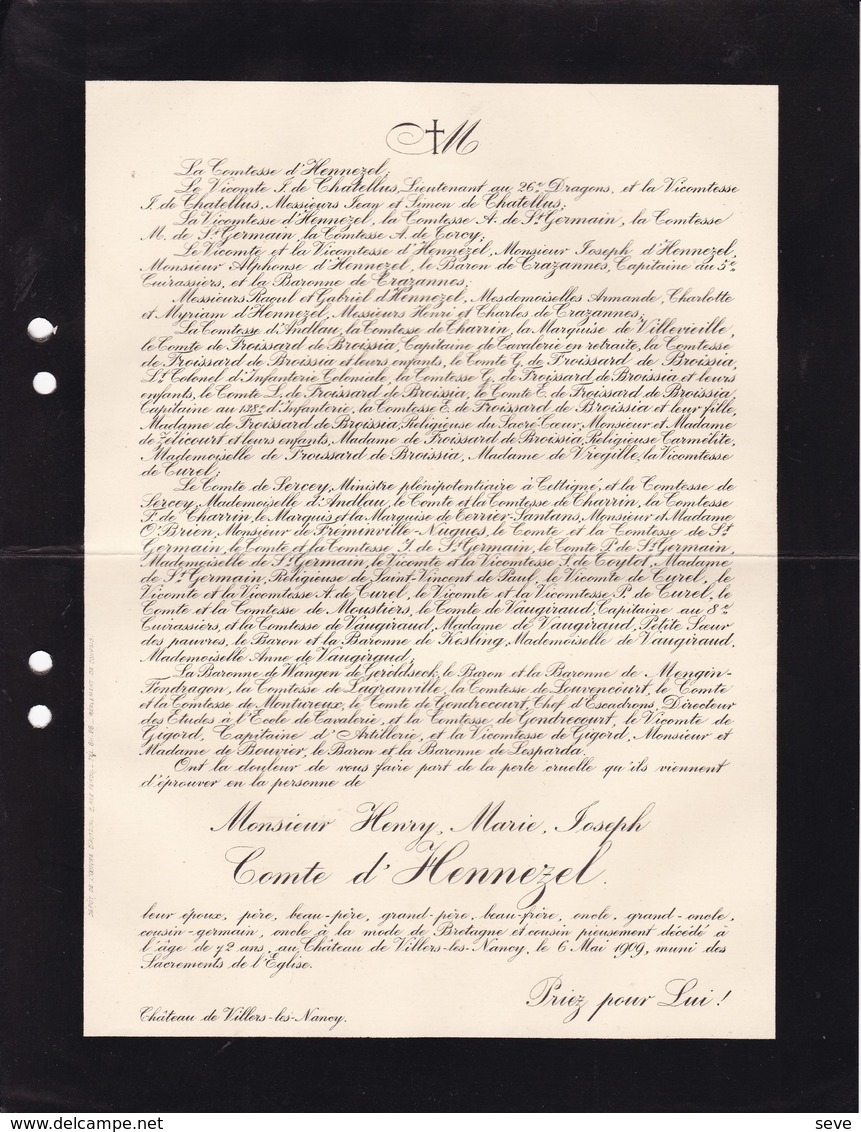 M
La Comtesse d'Hennezel;
Le Vicomte J. de Chatellus, Lieutenant au 26e Dragons, et la Vicomtesse
J. de Chatellus, Messieurs Jean et Simon de Chatellus;
La Vicomtesse d'Hennezel, la Comtesse A. de St Germain, la Comtesse
M. de St Germain, la Comtesse A. de Torcy;
Le Vicomte et la Vicomtesse d'Hennezel, Monsieur Joseph d'Hennezel,
Monsieur Alphonse d'Hennezel, le Baron de Crazannes, Capitaine au 5e
Cuirassiers, et la Baronne de Crazannes;
Messieurs Raoul et Gabriel d'Hennezel, Mesdemoiselles Armande, Charlotte
et Myriam d'Hennezel, Messieurs Henri et Charles de Crazannes;
La Comtesse d'Andlau, la Comtesse de Charrin, la Marquise de Villevieille,
le Comte de Froissard de Broissia, Capitaine de Cavalerie en retraite, la Comtesse
de Froissard de Broissia et leurs enfants, le Comte G. de Froissard de Broissia,
Lt Colonel d'Infanterie Coloniale, la Comtesse G. de Froissard de Broissia et leurs
enfants, le Comte L. de Froissard de Broissia, le Comte E. de Froissard de Broissia,
Capitaine au 138e d'Infanterie, la Comtesse E. de Froissard de Broissia et leur fille,
Madame de Froissard de Broissia, Religieuse du Sacré-Cœur, Monsieur et Madame
de Zélicourt et leurs enfants, Madame de Froissard de Broissia, Religieuse Carmélite,
Mademoiselle de Froissard de Broissia, Madame de Vregille, la Vicomtesse
de Curel;
Le Comte de Sercey, Ministre plénipotentiaire à Cettigné, et la Comtesse de
Sercey, Mademoiselle d'Andlau, le Comte et la Comtesse de Charrin, la Comtesse
F. de Charrin, le Marquis et la Marquise de Terrier-Santans, Monsieur et Madame
O'Brien, Monsieur de Fréminville-Nugues, le Comte et la Comtesse de St
Germain, le Comte et la Comtesse J. de St Germain, le Comte P. de St Germain,
Mademoiselle de St Germain, le Vicomte et la Vicomtesse S. de Toytot, Madame
de St Germain, Religieuse de Saint-Vincent de Paul, le Vicomte de Curel, le
Vicomte et la Vicomtesse A. de Curel, le Vicomte et la Vicomtesse P. de Curel, le
Comte et la Comtesse de Moustiers, le Comte de Vaugiraud, Capitaine au 8e
Cuirassiers, et la Comtesse de Vaugiraud, Madame de Vaugiraud, Petite Sœur
des pauvres, le Baron et la Baronne de Kesling, Mademoiselle de Vaugiraud,
Mademoiselle Anne de Vaugiraud;
La Baronne de Wangen de Geroldseck, le Baron et la Baronne de Mengin-
Fondragon, la Comtesse de Lagranville, la Comtesse de Louvencourt, le Comte
et la Comtesse de Montureux, le Comte de Gondrecourt, Chef d'Escadrons, Directeur
des Etudes à l'Ecole de Cavalerie, et la Comtesse de Gondrecourt, le Vicomte de
Gigord, Capitaine d'Artillerie, et la Vicomtesse de Gigord, Monsieur et
Madame de Bouvier, le Baron et la Baronne de Lesparda.
Ont la douleur de vous faire part de la perte cruelle qu'ils viennent
d'éprouver en la personne de
Monsieur Henry, Marie, Joseph
Comte d'Hennezel.
leur époux, père, beau-père, grand-père, beau-frère, oncle, grand-oncle,
cousin-germain, oncle à la mode de Bretagne et cousin pieusement décédé à
l'âge de 72 ans, au Château de Villers-les-Nancy, le 6 Mai 1909, muni des
Sacrements de l'Eglise.
Priez pour Lui !
Château de Villers-les-Nancy.
seve